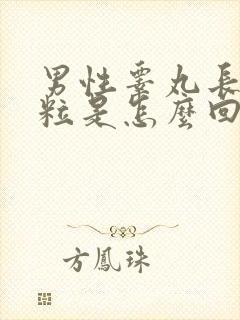 男性睪丸長
粒是怎麼回
方鳳珠